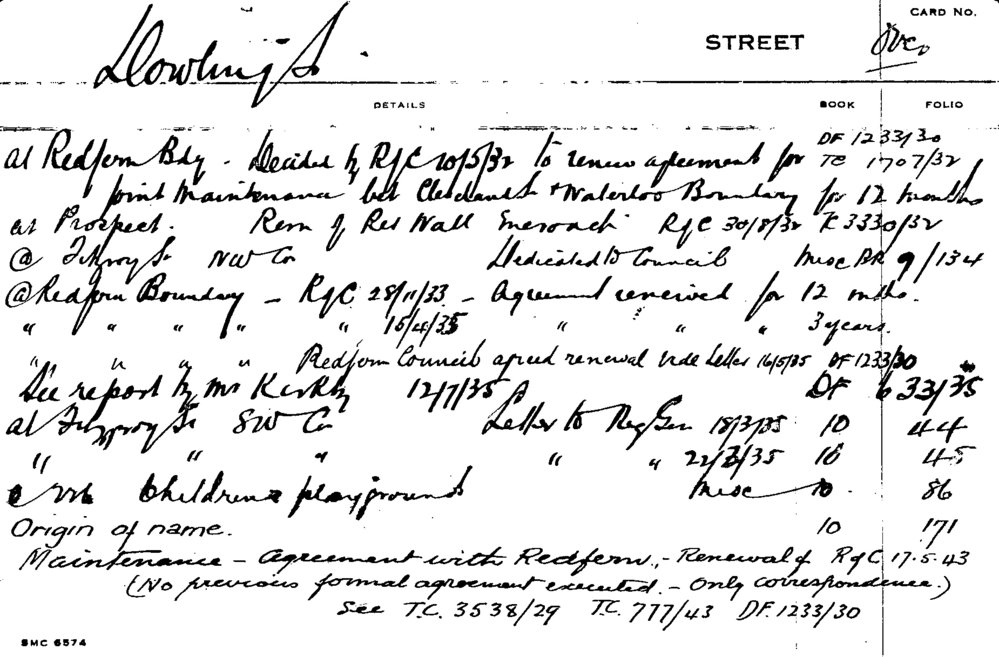 CARD No.
Dowling St. STREET Over
DETAILS BOOK FOLIO
DF 1233/30
at Redfern Bdy - Decided by R&C 10/5/32 to renew agreement for TC 1707/32
joint maintenance bet Cleveland St & Waterloo Boundary for 12 months
at Prospect. Rem of Res Wall Encroach R&C 30/8/32 TC 3330/32
@ Fitzroy St NW Cor Dedicated to Council Misc PR 9/134
@ Redfern Boundary - R&C 28/11/33 - Agreement renewed for 12 mths.
" " " " " 15/4/35 " " " 3 years.
" " " " Redfern Council agreed renewal vide letter 16/5/35 DF 1233/30
See report by Mr Kirkby 12/7/35 DF 633/35
at Fitzroy St SW Cor Letter to Reg Gen 18/3/35 10 44
" " " " " 22/3/35 10 45
Children's playground Misc 10. 86
Origin of name. 10 171
Maintenance - Agreement with Redfern, - Renewal of R&C 17.5.43
(No previous formal agreement executed. - Only correspondence.)
See T.C. 3538/29 T.C. 777/43 DF. 1233/30
SMC 6574